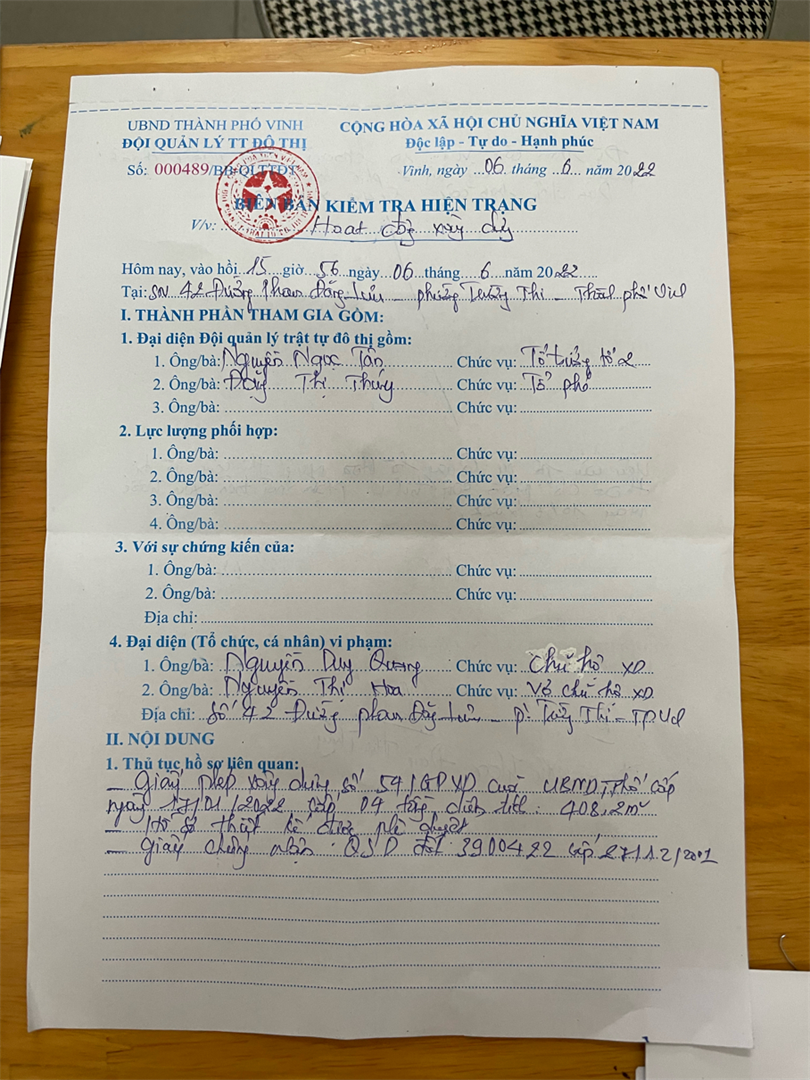 UBND THÀNH PHỐ VINH
ĐỘI QUẢN LÝ TT ĐÔ THỊ
Số: 000489/BB-QLTTĐT
CỘNG HÒA XÃ HỘI CHỦ NGHĨA VIỆT NAM
Độc lập - Tự do - Hạnh phúc
Vinh, ngày 06 tháng 6 năm 2022
BIÊN BẢN KIỂM TRA HIỆN TRẠNG
V/v: Hoạt động xây dựng
Hôm nay, vào hồi 15 giờ 56 ngày 06 tháng 6 năm 2022
Tại: SN 42 Đường Phan Đăng Lưu - phường Trường Thi - Thành phố Vinh
I. THÀNH PHẦN THAM GIA GỒM:
1. Đại diện Đội quản lý trật tự đô thị gồm:
1. Ông/bà: Nguyễn Ngọc Tân Chức vụ: Tổ trưởng tổ 2
2. Ông/bà: Đặng Thị Thúy Chức vụ: Tổ phó
3. Ông/bà: Chức vụ:
2. Lực lượng phối hợp:
1. Ông/bà: Chức vụ:
2. Ông/bà: Chức vụ:
3. Ông/bà: Chức vụ:
4. Ông/bà: Chức vụ:
3. Với sự chứng kiến của:
1. Ông/bà: Chức vụ:
2. Ông/bà: Chức vụ:
Địa chỉ:
4. Đại diện (Tổ chức, cá nhân) vi phạm:
1. Ông/bà: Nguyễn Duy Quang Chức vụ: Chủ hộ XD
2. Ông/bà: Nguyễn Thị Hoa Chức vụ: Vợ chủ hộ XD
Địa chỉ: Số 42 Đường Phan Đăng Lưu - p. Trường Thi - TP Vinh
II. NỘI DUNG
1. Thủ tục hồ sơ liên quan:
- Giấy phép xây dựng số 54/GPXD của UBND T.Phố cấp
ngày 17/01/2022 cấp 04 tầng diện tích: 408,2m²
- Hồ sơ thiết kế được phê duyệt
- Giấy chứng nhận QSD đất 3900422 cấp 27/12/2001